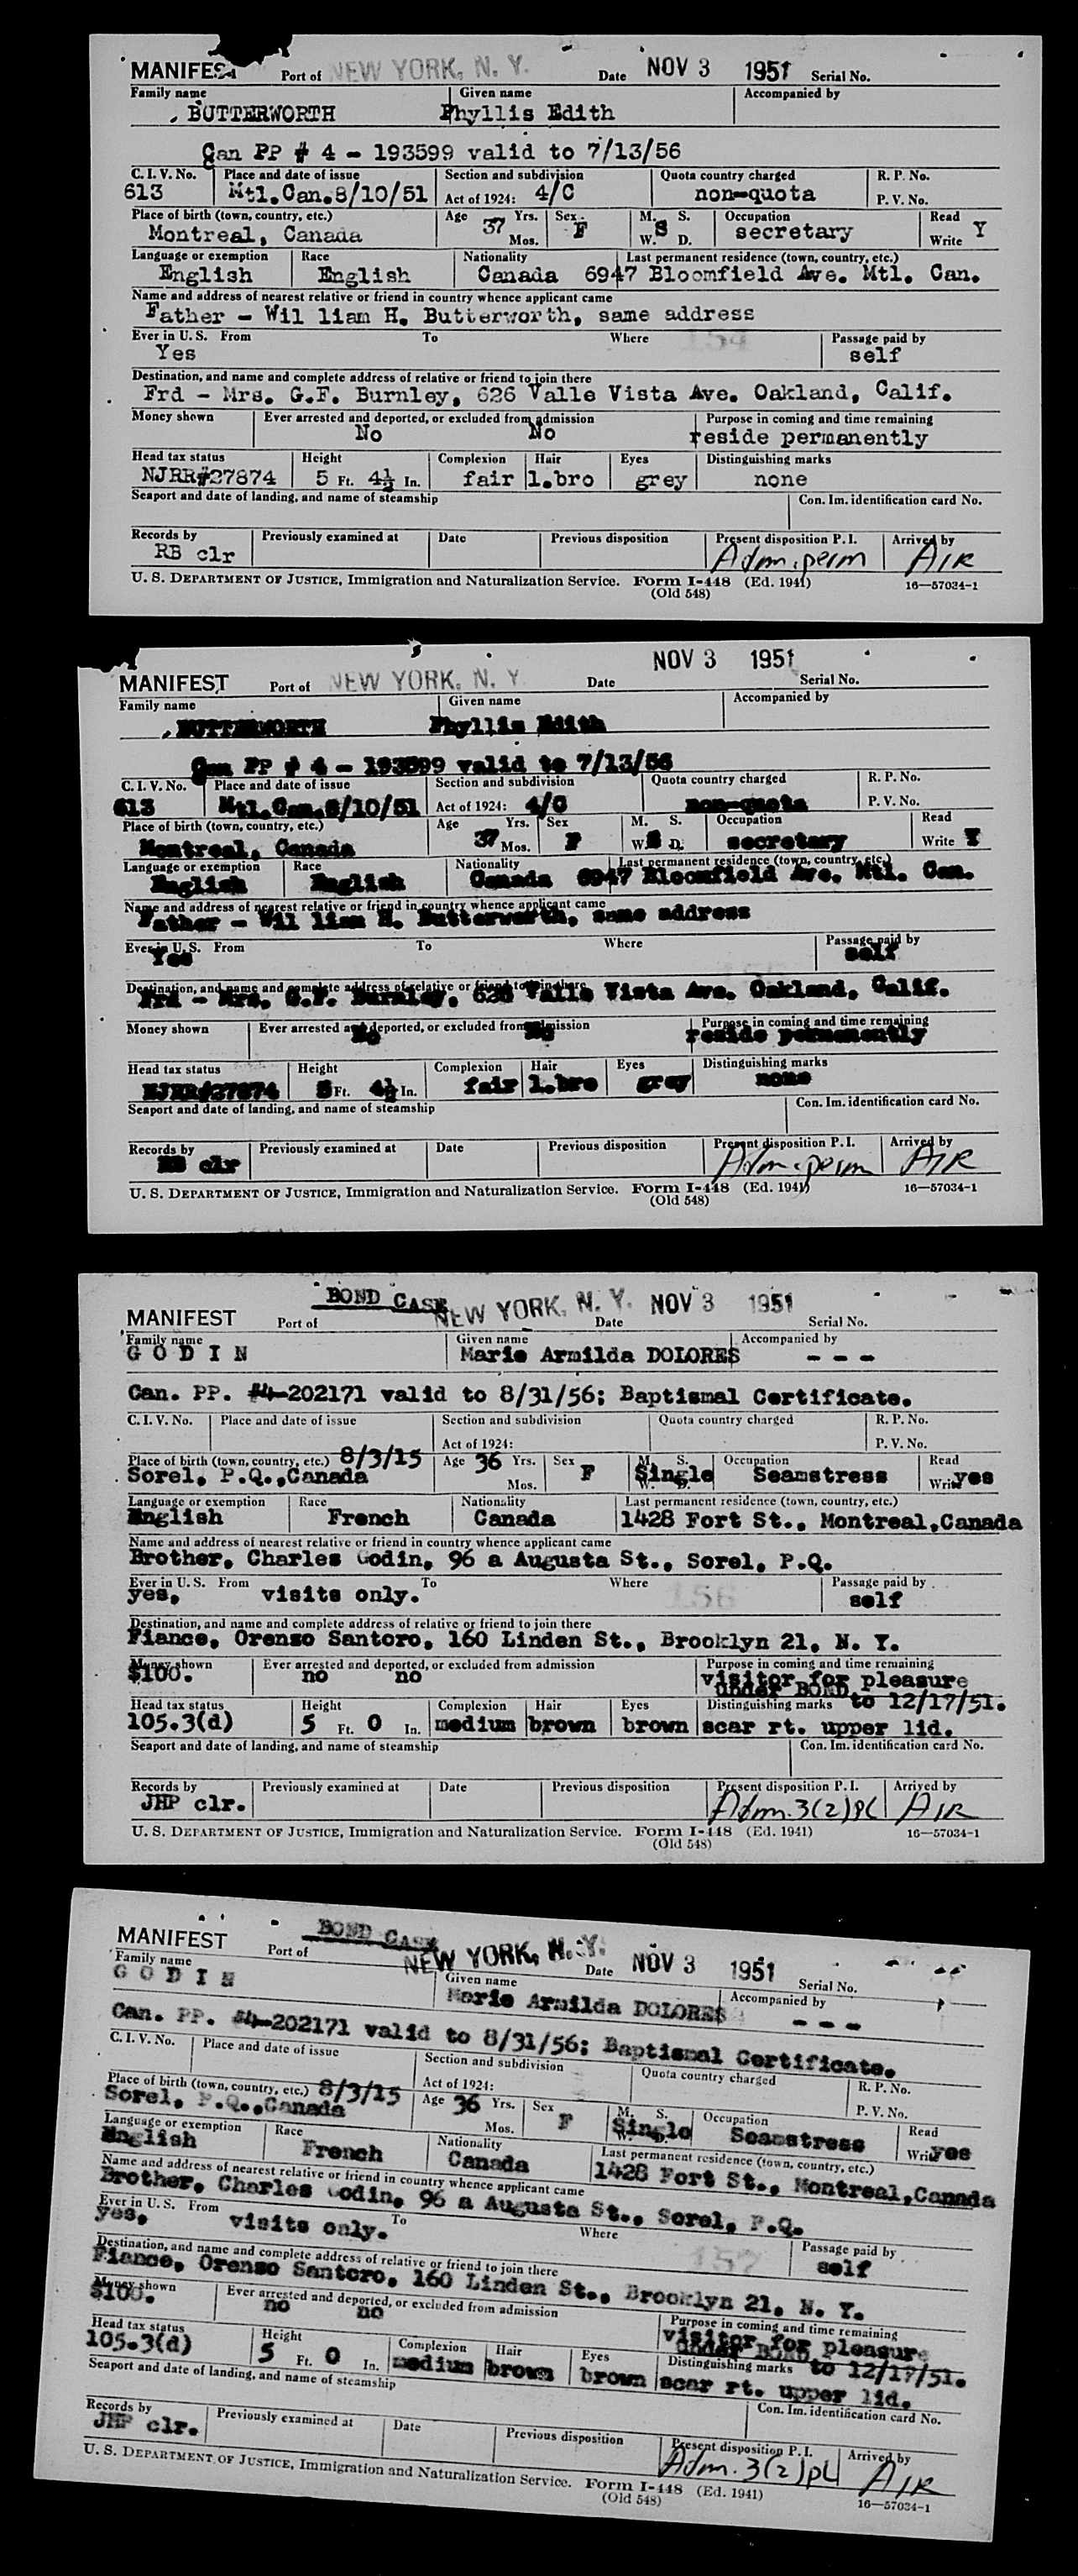 MANIFEST Port of NEW YORK, N. Y. Date NOV 3 1951 Serial No.
Family name Given name Accompanied by
BUTTERWORTH Phyllis Edith
Can PP # 4 - 193599 valid to 7/13/56
C. I. V. No. Place and date of issue Section and subdivision Quota country charged R. P. No.
613 Mtl.Can.8/10/51 Act of 1924: 4/C non-quota P. V. No.
Place of birth (town, country, etc.) Age 37 Yrs. Sex M. S. Occupation Read
Montreal, Canada Mos. F W. S D. secretary Write Y
Language or exemption Race Nationality Last permanent residence (town, country, etc.)
English English Canada 6947 Bloomfield Ave. Mtl. Can.
Name and address of nearest relative or friend in country whence applicant came
Father - Wil liam H. Butterworth, same address
Ever in U. S. From To Where 154 Passage paid by
Yes self
Destination, and name and complete address of relative or friend to join there
Frd - Mrs. G.F. Burnley, 626 Valle Vista Ave. Oakland, Calif.
Money shown Ever arrested and deported, or excluded from admission Purpose in coming and time remaining
No No reside permanently
Head tax status Height Complexion Hair Eyes Distinguishing marks
NJRR#27874 5 Ft. 4½ In. fair l.bro grey none
Seaport and date of landing, and name of steamship Con. Im. identification card No.
Records by Previously examined at Date Previous disposition Present disposition P. I. Arrived by
RB clr Adm. perm AIR
U. S. DEPARTMENT OF JUSTICE, Immigration and Naturalization Service. Form I-448 (Ed. 1941) 16—57034-1
(Old 548)
NOV 3 1951
MANIFEST Port of NEW YORK, N. Y. Date Serial No.
Family name Given name Accompanied by
BUTTERWORTH Phyllis Edith
Can PP # 4 - 193599 valid to 7/13/56
C. I. V. No. Place and date of issue Section and subdivision Quota country charged R. P. No.
613 Mtl.Can.8/10/51 Act of 1924: 4/C non-quota P. V. No.
Place of birth (town, country, etc.) Age 37 Yrs. Sex M. S. Occupation Read
Montreal, Canada Mos. F W. S D. secretary Write Y
Language or exemption Race Nationality Last permanent residence (town, country, etc.)
English English Canada 6947 Bloomfield Ave. Mtl. Can.
Name and address of nearest relative or friend in country whence applicant came
Father - Wil liam H. Butterworth, same address
Ever in U. S. From To Where Passage paid by
Yes self
Destination, and name and complete address of relative or friend to join there
Frd - Mrs. G.F. Burnley, 626 Valle Vista Ave. Oakland, Calif.
Money shown Ever arrested and deported, or excluded from admission Purpose in coming and time remaining
No No reside permanently
Head tax status Height Complexion Hair Eyes Distinguishing marks
NJRR#27874 5 Ft. 4½ In. fair l.bro grey none
Seaport and date of landing, and name of steamship Con. Im. identification card No.
Records by Previously examined at Date Previous disposition Present disposition P. I. Arrived by
RB clr Adm. perm AIR
U. S. DEPARTMENT OF JUSTICE, Immigration and Naturalization Service. Form I-448 (Ed. 1941) 16—57034-1
(Old 548)
BOND CASE
MANIFEST Port of NEW YORK, N. Y. Date NOV 3 1951 Serial No.
Family name Given name Accompanied by
G O D I N Marie Armilda DOLORES - - -
Can. PP. #4-202171 valid to 8/31/56; Baptismal Certificate.
C. I. V. No. Place and date of issue Section and subdivision Quota country charged R. P. No.
Act of 1924: P. V. No.
Place of birth (town, country, etc.) 8/3/15 Age 36 Yrs. Sex M. S. Occupation Read
Sorel, P.Q.,Canada Mos. F Single W. D. Seamstress Write yes
Language or exemption Race Nationality Last permanent residence (town, country, etc.)
English French Canada 1428 Fort St., Montreal,Canada
Name and address of nearest relative or friend in country whence applicant came
Brother, Charles Godin, 96 a Augusta St., Sorel, P.Q.
Ever in U. S. From To Where 156 Passage paid by
yes, visits only. self
Destination, and name and complete address of relative or friend to join there
Fiance, Orenso Santoro, 160 Linden St., Brooklyn 21, N. Y.
Money shown Ever arrested and deported, or excluded from admission Purpose in coming and time remaining
$100. no no visitor for pleasure
under BOND to 12/17/51.
Head tax status Height Complexion Hair Eyes Distinguishing marks
105.3(d) 5 Ft. 0 In. medium brown brown scar rt. upper lid.
Seaport and date of landing, and name of steamship Con. Im. identification card No.
Records by Previously examined at Date Previous disposition Present disposition P. I. Arrived by
JHP clr. Adm. 3(2)PL AIR
U. S. DEPARTMENT OF JUSTICE, Immigration and Naturalization Service. Form I-448 (Ed. 1941) 16—57034-1
(Old 548)
BOND CASE
MANIFEST Port of NEW YORK, N. Y. Date NOV 3 1951 Serial No.
Family name Given name Accompanied by
G O D I N Marie Armilda DOLORES - - -
Can. PP. #4-202171 valid to 8/31/56; Baptismal Certificate.
C. I. V. No. Place and date of issue Section and subdivision Quota country charged R. P. No.
Act of 1924: P. V. No.
Place of birth (town, country, etc.) 8/3/15 Age 36 Yrs. Sex M. S. Occupation Read
Sorel, P.Q.,Canada Mos. F Single W. D. Seamstress Write yes
Language or exemption Race Nationality Last permanent residence (town, country, etc.)
English French Canada 1428 Fort St., Montreal,Canada
Name and address of nearest relative or friend in country whence applicant came
Brother, Charles Godin, 96 a Augusta St., Sorel, P.Q.
Ever in U. S. From To Where 157 Passage paid by
yes, visits only. self
Destination, and name and complete address of relative or friend to join there
Fiance, Orenso Santoro, 160 Linden St., Brooklyn 21, N. Y.
Money shown Ever arrested and deported, or excluded from admission Purpose in coming and time remaining
$100. no no visitor for pleasure
under BOND to 12/17/51.
Head tax status Height Complexion Hair Eyes Distinguishing marks
105.3(d) 5 Ft. 0 In. medium brown brown scar rt. upper lid.
Seaport and date of landing, and name of steamship Con. Im. identification card No.
Records by Previously examined at Date Previous disposition Present disposition P. I. Arrived by
JHP clr. Adm. 3(2)PL AIR
U. S. DEPARTMENT OF JUSTICE, Immigration and Naturalization Service. Form I-448 (Ed. 1941) 16—57034-1
(Old 548)